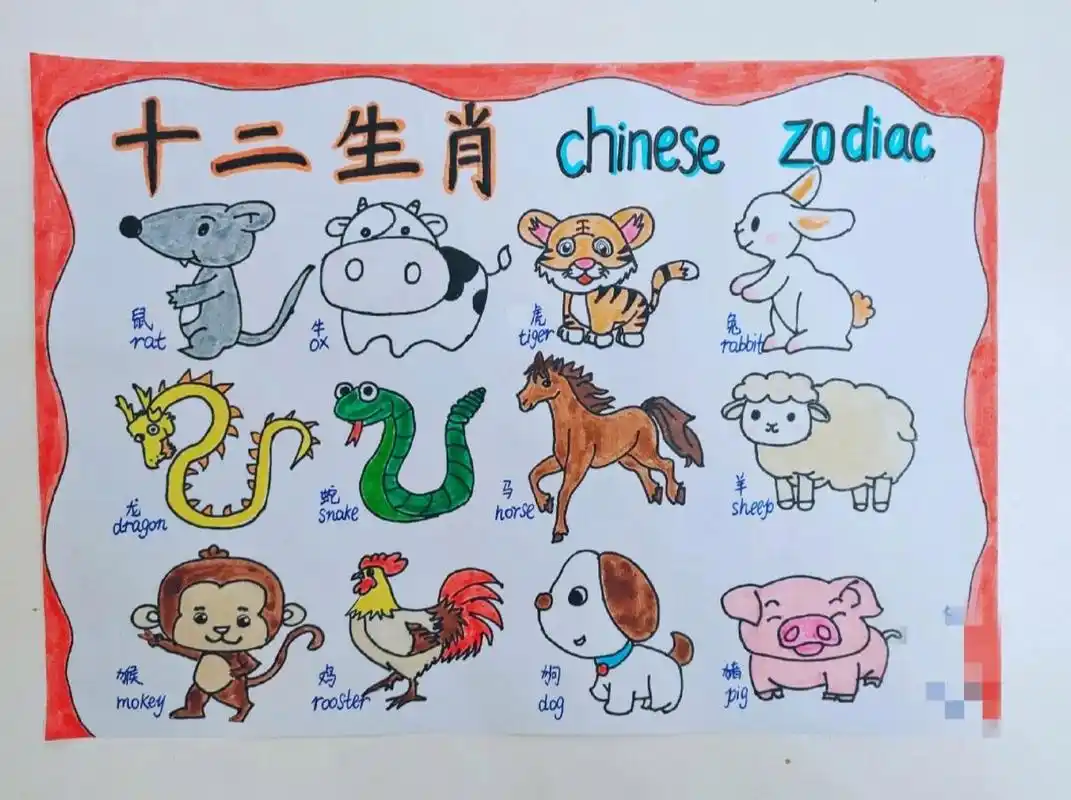 十二生肖 chinese zodiac
鼠
rat
牛
ox
虎
tiger
兔
rabbit
龙
dragon
蛇
snake
马
horse
羊
sheep
猴
mokey
鸡
rooster
狗
dog
猪
pig